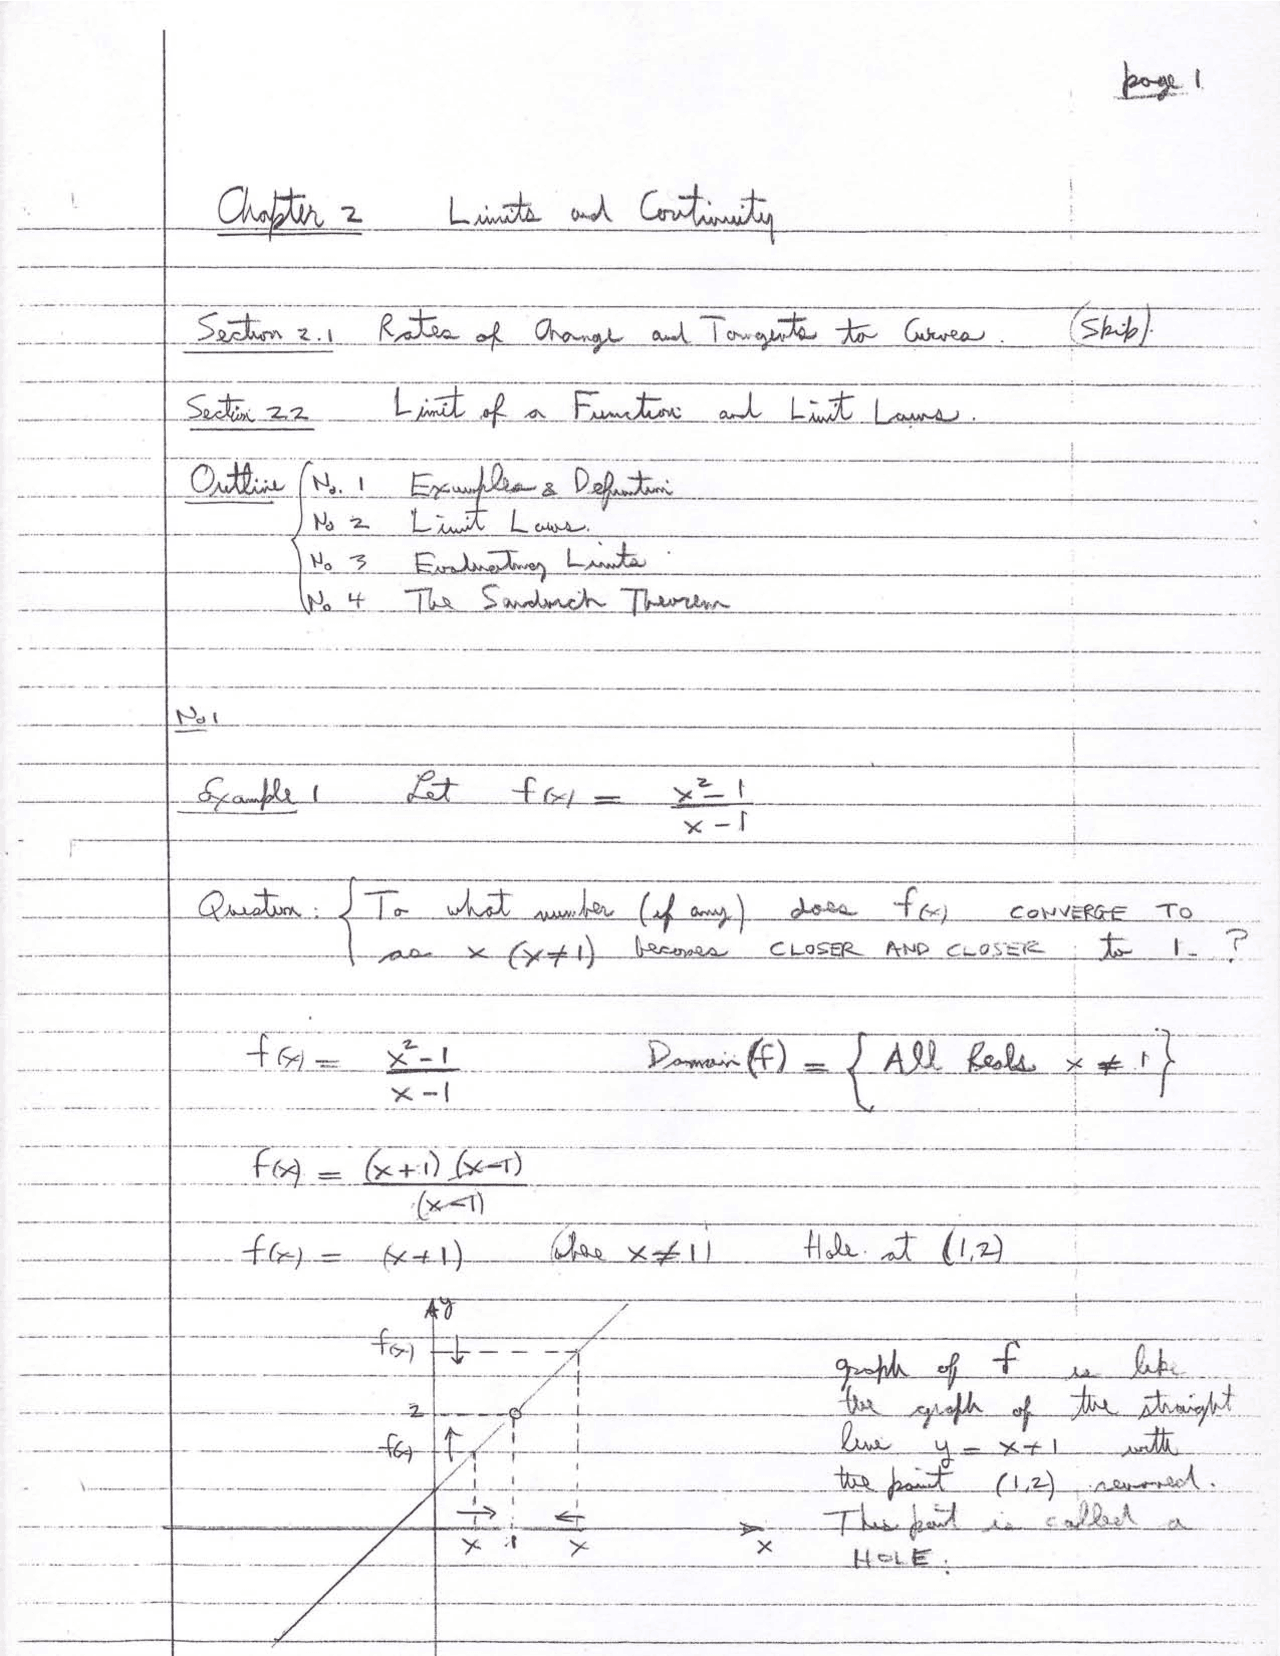 page 1
Chapter 2 Limits and Continuity
Section 2.1 Rates of Change and Tangents to Curves. (Skip).
Section 2.2 Limit of a Function and Limit Laws.
Outline { No. 1 Examples & Definition
No 2 Limit Laws.
No 3 Evaluating Limits
No 4 The Sandwich Theorem
No 1
Example 1 Let f(x) = (x² - 1)/(x - 1)
Question: { To what number (if any) does f(x) CONVERGE TO
as x (x ≠ 1) becomes CLOSER AND CLOSER to 1. ?
f(x) = (x² - 1)/(x - 1) Domain (f) = { All Reals x ≠ 1 }
f(x) = (x + 1)(x - 1)/(x - 1)
f(x) = (x + 1) (where x ≠ 1) Hole at (1, 2)
y
f(x)
2
f(x)
x 1 x x
graph of f is like
the graph of the straight
line y = x + 1 with
the point (1, 2) removed.
This point is called a
HOLE.